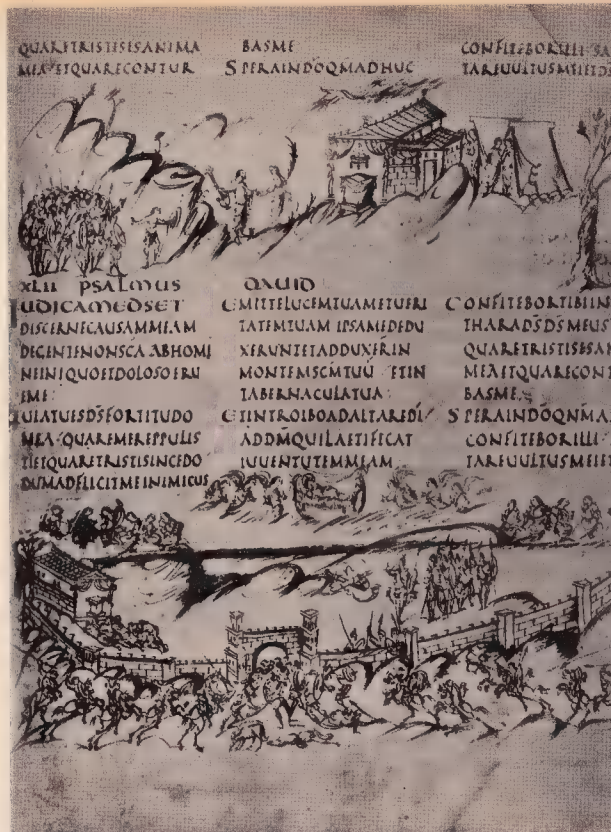 QUARETRISTISESANIMA
MEA·ETQUARECONTUR
BASME
SPERAINDŌQMADHUC
CONFITEBORILLI·SA
TAREUULTUSMEIETDS
XLII PSALMUS DAUID
IUDICAMEDSET
DISCERNECAUSAMMEAM
DEGENTENONSCA ABHOMI
NEINIQUOETDOLOSOERU
EME·
UIATUESDSFORTITUDO
MEA·QUAREMEREPPULIS
TIETQUARETRISTISINCEDO
DUMADFLICITMEINIMICUS
EMITTELUCEMTUAMETUERI
TATEMTUAM IPSAMEDEDU
XERUNTETADDUXERIN
MONTEMSCMTUU ETIN
TABERNACULATUA·
ETINTROIBOADALTAREDI
ADDMQUILAETIFICAT
IUUENTUTEMMEAM
CONFITEBORTIBIIN
THARADSDSMEUS
QUARETRISTISESAN
MEAETQUARECONT
BASME·
SPERAINDŌQNMA
CONFITEBORILLI·
TAREUULTUSMEIET